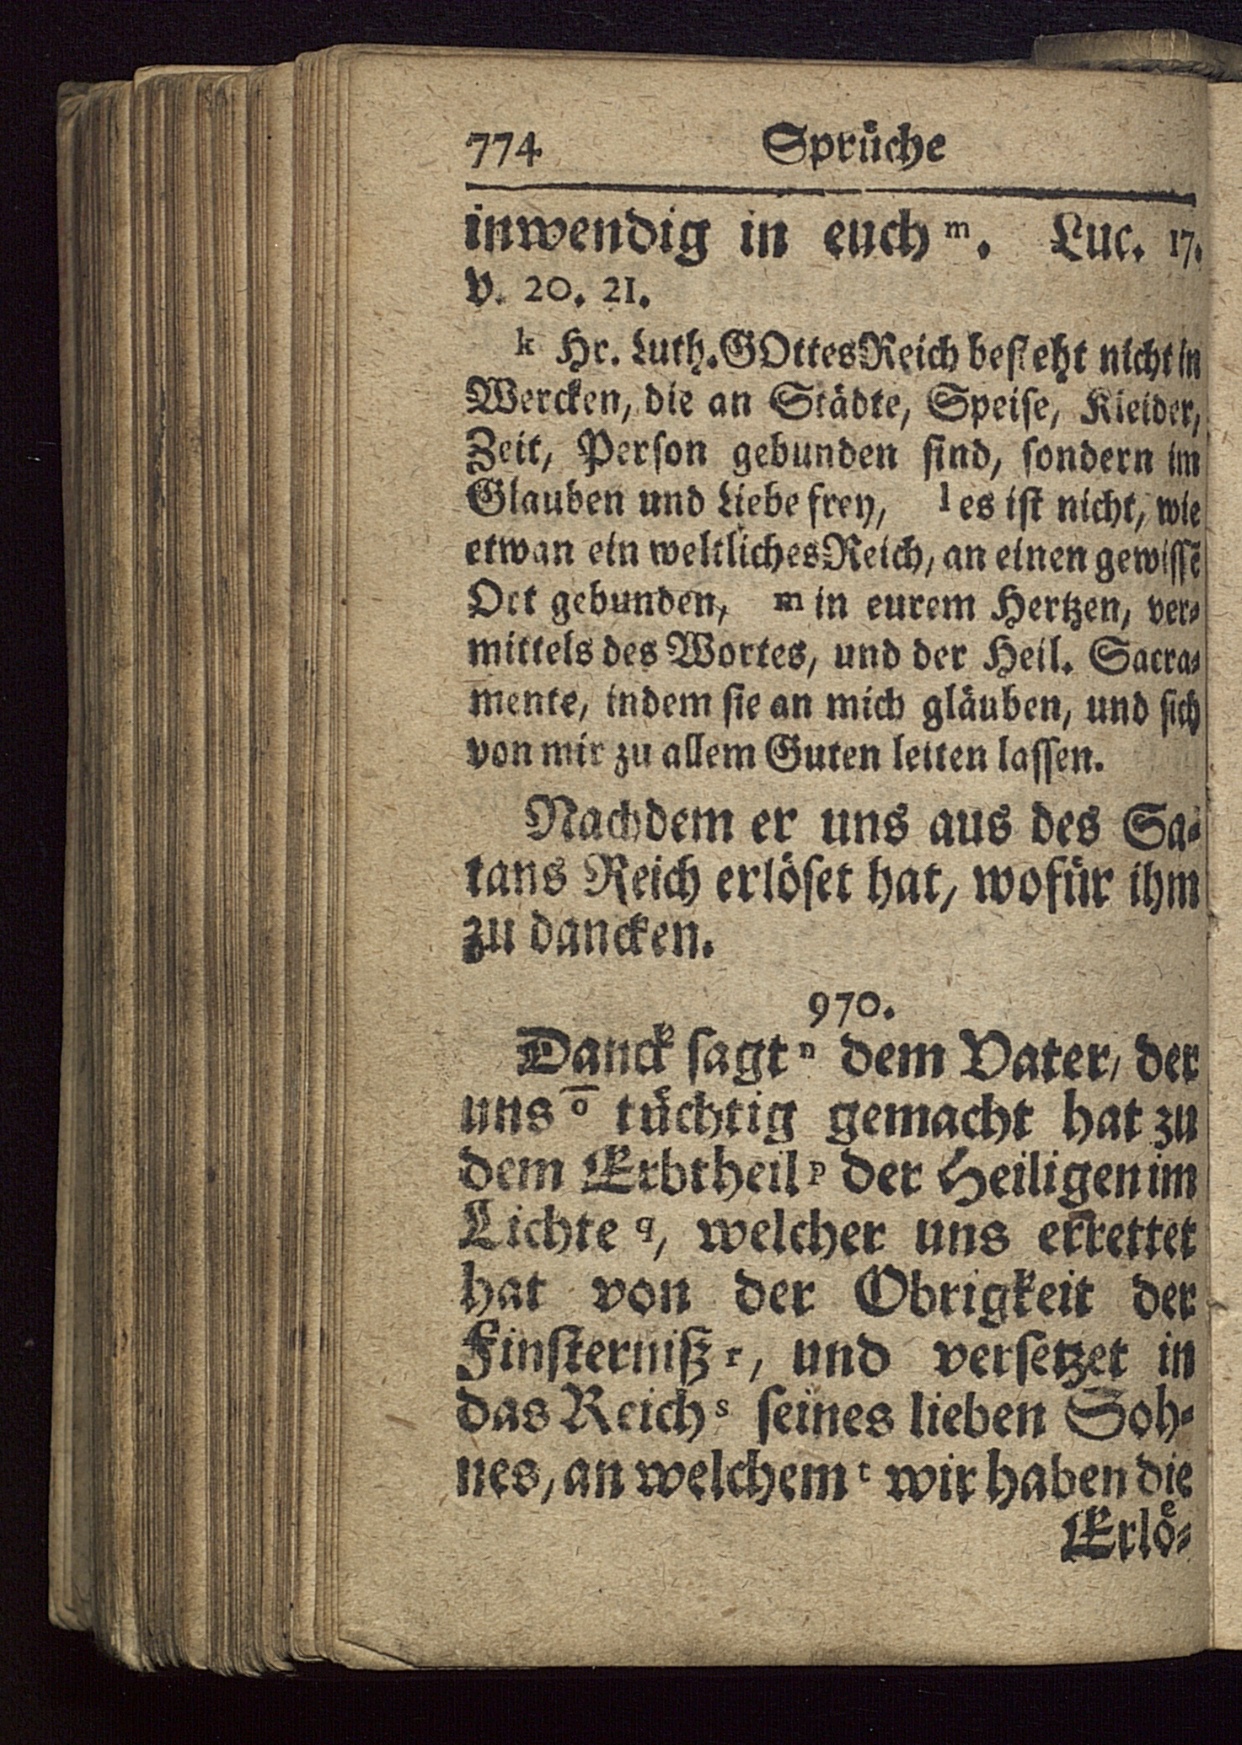 774 Sprüche
inwendig in euch m. Luc. 17.
v. 20. 21.
k Hr. Luth. GOttes Reich besteht nicht in
Wercken, die an Städte, Speise, Kleider,
Zeit, Person gebunden sind, sondern im
Glauben und Liebe frey, l es ist nicht, wie
etwan ein weltliches Reich, an einen gewissē
Ort gebunden, m in eurem Hertzen, ver-
mittels des Wortes, und der Heil. Sacra-
mente, indem sie an mich gläuben, und sich
von mir zu allem Guten leiten lassen.
Nachdem er uns aus des Sa-
tans Reich erlöset hat, wofür ihm
zu dancken.
970.
Danck sagt n dem Vater, der
uns o tüchtig gemacht hat zu
dem Erbtheil p der Heiligen im
Lichte q, welcher uns errettet
hat von der Obrigkeit der
Finsterniß r, und versetzet in
das Reich s seines lieben Soh-
nes, an welchem t wir haben die
Erlö-